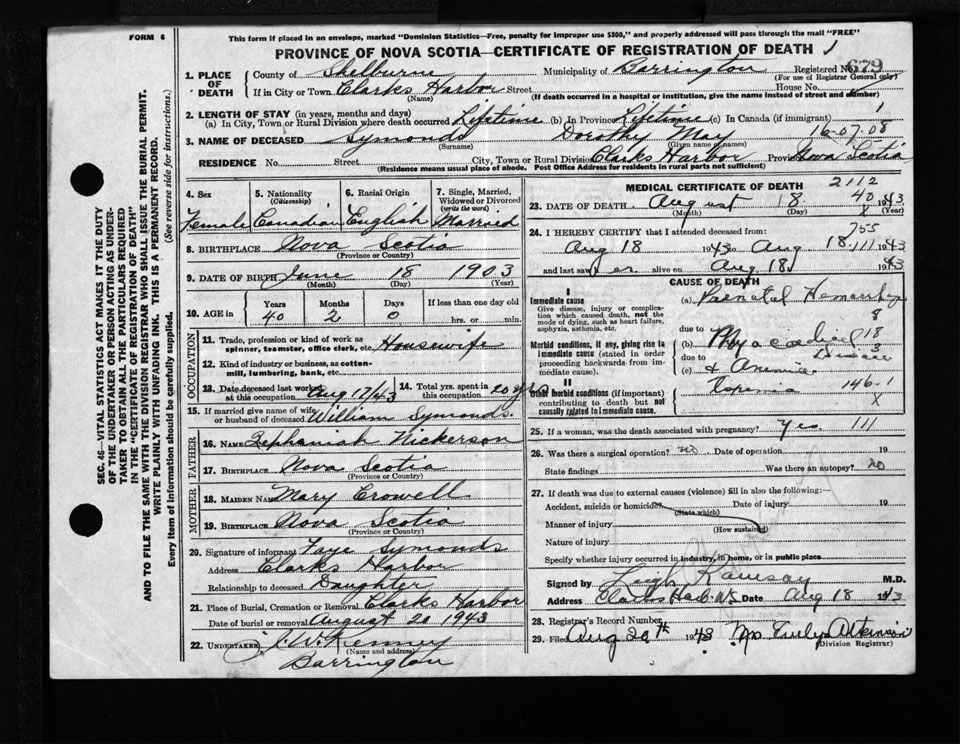 FORM 6
This form if placed in an envelope, marked "Dominion Statistics—Free, penalty for improper use $300," and properly addressed will pass through the mail "FREE"
PROVINCE OF NOVA SCOTIA—CERTIFICATE OF REGISTRATION OF DEATH 1
1. PLACE OF DEATH
County of Shelburne Municipality of Barrington Registered No. 679
(For use of Registrar General only)
If in City or Town Clarks Harbor Street House No.
(Name) (If death occurred in a hospital or institution, give the name instead of street and number)
2. LENGTH OF STAY (in years, months and days) 1
(a) In City, Town or Rural Division where death occurred Lifetime (b) In Province Lifetime (c) In Canada (if immigrant)
3. NAME OF DECEASED Symonds Dorothy May 16-07.08
(Surname) (Given name or names)
RESIDENCE No. Street City, Town or Rural Division Clarks Harbor Province Nova Scotia
(Residence means usual place of abode. Post Office Address for residents in rural parts not sufficient)
SEC. 46—VITAL STATISTICS ACT MAKES IT THE DUTY
OF THE UNDERTAKER OR PERSON ACTING AS UNDER-
TAKER TO OBTAIN ALL THE PARTICULARS REQUIRED
IN THE "CERTIFICATE OF REGISTRATION OF DEATH"
AND TO FILE THE SAME WITH THE DIVISION REGISTRAR WHO SHALL ISSUE THE BURIAL PERMIT.
WRITE PLAINLY WITH UNFADING INK. THIS IS A PERMANENT RECORD.
Every item of Information should be carefully supplied. (See reverse side for instructions.)
4. Sex 5. Nationality (Citizenship) 6. Racial Origin 7. Single, Married, Widowed or Divorced (write the word)
Female Canadian English Married
8. BIRTHPLACE Nova Scotia
(Province or Country)
9. DATE OF BIRTH June 18 1903
(Month) (Day) (Year)
10. AGE in Years Months Days If less than one day old
40 2 0 hrs. or min.
OCCUPATION
11. Trade, profession or kind of work as spinner, teamster, office clerk, etc. Housewife
12. Kind of industry or business, as cotton-mill, lumbering, bank, etc.
13. Date deceased last worked at this occupation Aug 17/43 14. Total yrs. spent in this occupation 20 yrs
15. If married give name of wife or husband of deceased William Symonds.
FATHER
16. NAME Zephaniah Nickerson
17. BIRTHPLACE Nova Scotia
(Province or Country)
MOTHER
18. MAIDEN NAME Mary Crowell
19. BIRTHPLACE Nova Scotia
(Province or Country)
20. Signature of informant Faye Symonds
Address Clarks Harbor
Relationship to deceased Daughter
21. Place of Burial, Cremation or Removal Clarks Harbor
Date of burial or removal August 20 1943
22. UNDERTAKER J. W. Kenney
(Name and address)
Barrington
MEDICAL CERTIFICATE OF DEATH 2112
23. DATE OF DEATH August 18 40 1943
(Month) (Day) X (Year)
24. I HEREBY CERTIFY that I attended deceased from: 755
Aug 18 1943 to Aug 18. 111 1943
and last saw her alive on Aug 18 1943
CAUSE OF DEATH
I
Immediate cause
Give disease, injury or complication which caused death, not the mode of dying, such as heart failure, asphyxia, asthenia, etc.
(a) Hemorrhage
8
due to
Morbid conditions, if any, giving rise to immediate cause (stated in order proceeding backwards from immediate cause).
(b) Myocardial Disease 18
3
due to
(c) & Anemia
II
Other morbid conditions (if important) contributing to death but not causally related to immediate cause.
146.1
X
25. If a woman, was the death associated with pregnancy? Yes 111
26. Was there a surgical operation? no Date of operation 19
State findings Was there an autopsy? no
27. If death was due to external causes (violence) fill in also the following:—
Accident, suicide or homicide? Date of injury 19
(State which)
Manner of injury
(How sustained)
Nature of injury
Specify whether injury occurred in industry, in home, or in public place
Signed by Leigh Ramsay M.D.
Address Clarks Harb. N.S. Date Aug 18 1943
28. Registrar's Record Number
29. Filed Aug 20th 1943 Mrs Evelyn Atkinson
(Division Registrar)